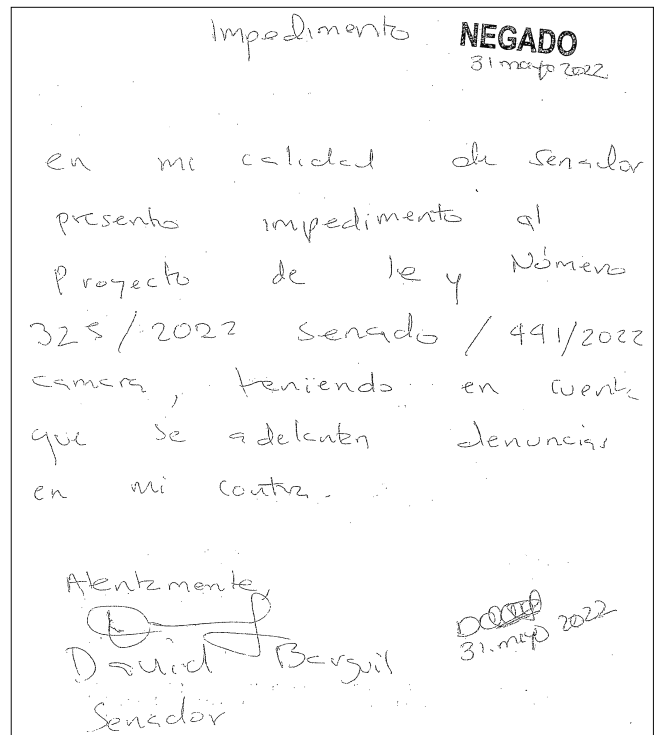 Impedimento NEGADO
31 mayo 2022
en mi calidad de Senador
presento impedimento al
Proyecto de ley Número
325/2022 Senado / 441/2022
camara, teniendo en cuenta
que se adelantan denuncias
en mi contra.
Atentamente,
David Barguil
31. mayo 2022
Senador